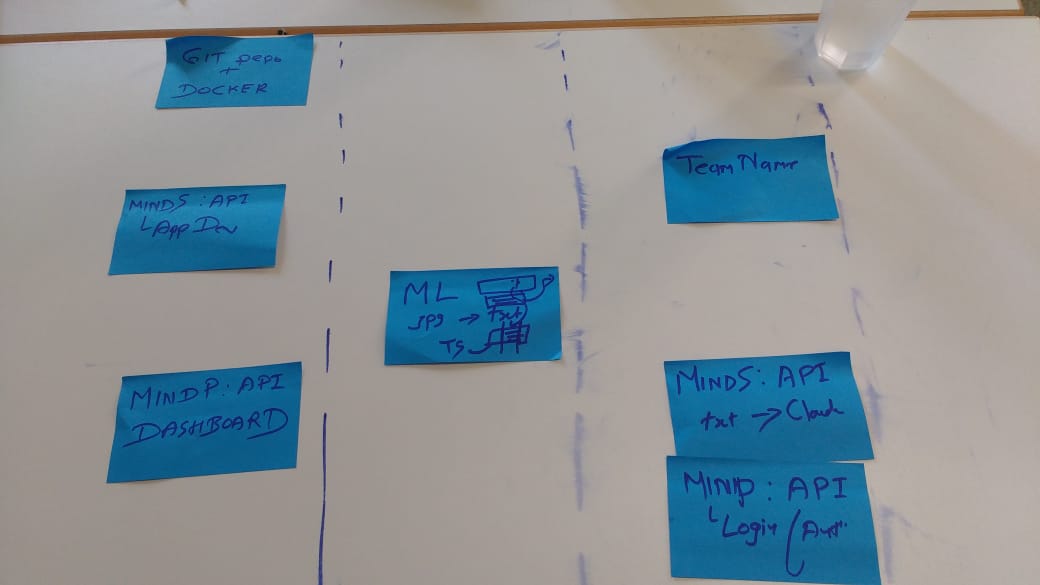 GIT repo
+
DOCKER
MINDS : API
App Dev
MINDP : API
DASHBOARD
ML
jpg → txt
TS
Team Name
MINDS : API
txt → Claude
MINDP : API
Login / Aut